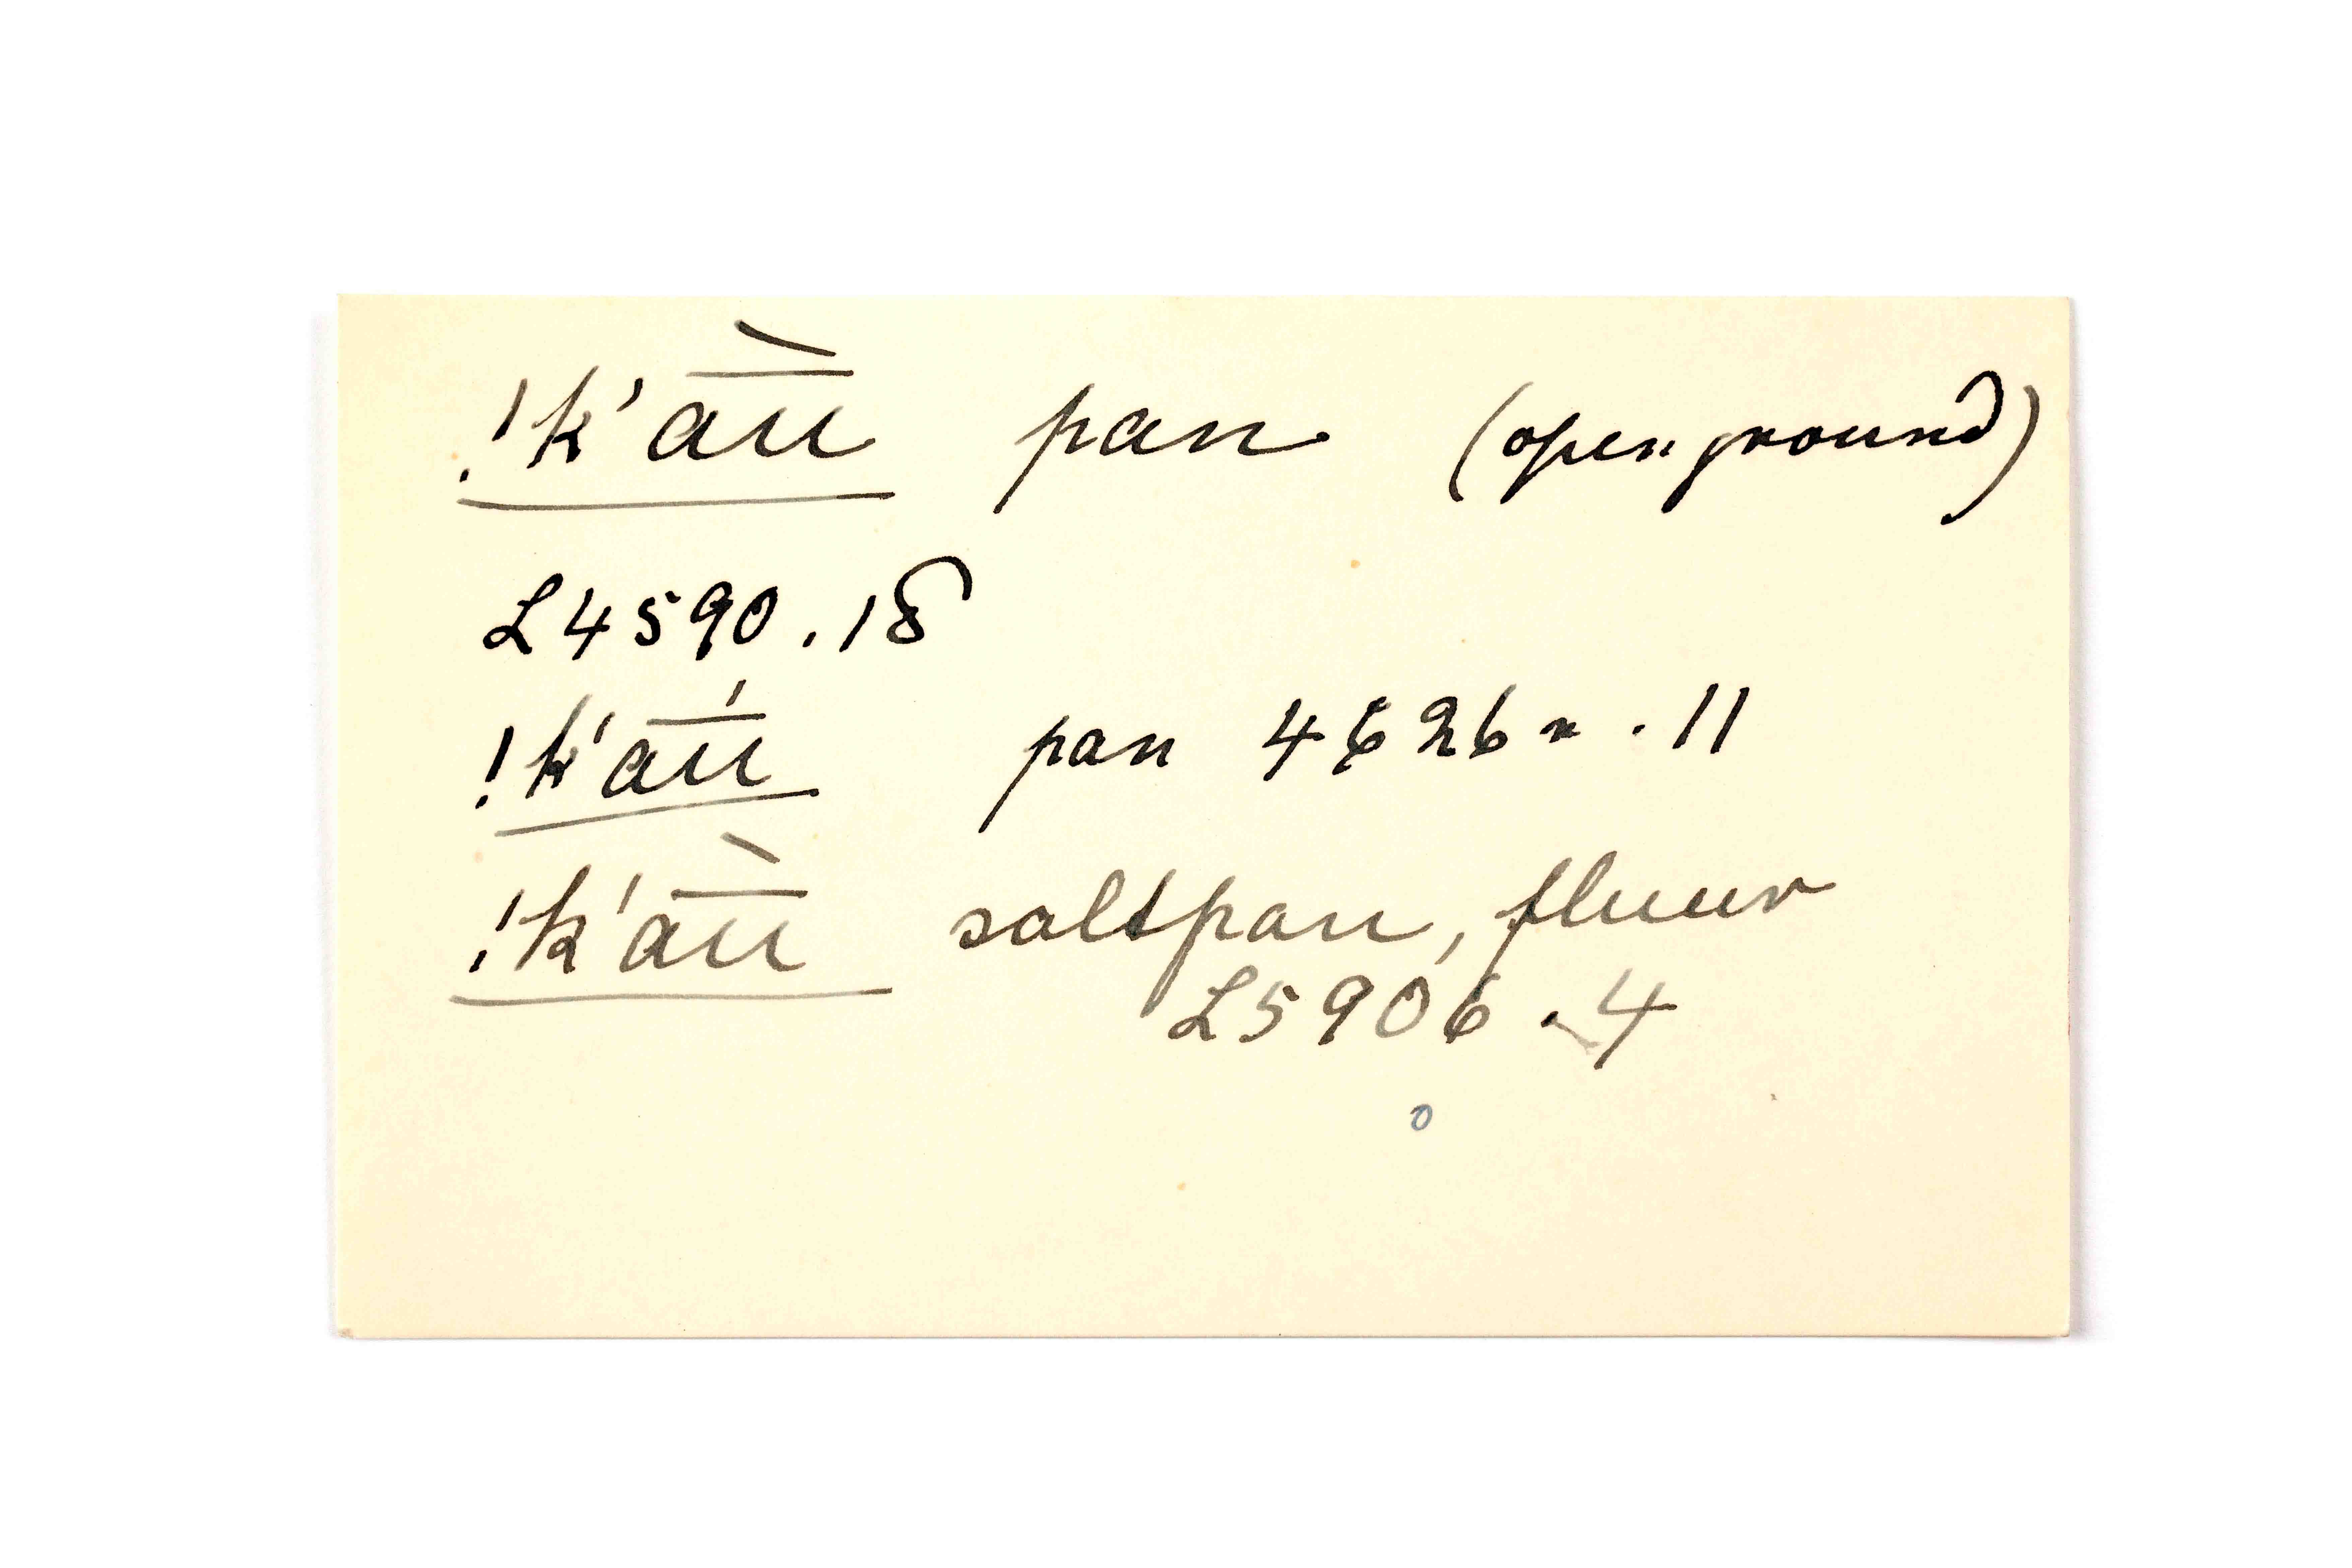 !k'a͞ù pan (open ground)
L4590.18
!k'a͞ú pan 4626 .11
!k'a͞ù saltpan,
L5906.4